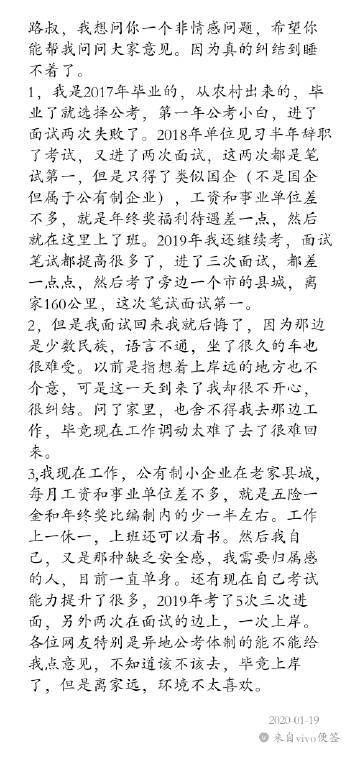 路叔，我想问你一个非情感问题，希望你
能帮我问问大家意见。因为真的纠结到睡
不着了。
1，我是2017年毕业的，从农村出来的，毕
业了就选择公考，第一年公考小白，进了
面试两次失败了。2018年单位见习半年辞职
了考试，又进了两次面试，这两次都是笔
试第一，但是只得了类似国企（不是国企
但属于公有制企业），工资和事业单位差
不多，就是年终奖福利待遇差一点，然后
就在这里上了班。2019年我还继续考，面试
笔试都提高很多了，进了三次面试，都差
一点点，然后考了旁边一个市的县城，离
家160公里，这次笔试面试第一。
2，但是我面试回来我就后悔了，因为那边
是少数民族，语言不通，坐了很久的车也
很难受。以前是指想着上岸远的地方也不
介意，可是这一天到来了我却很不开心，
很纠结。问了家里，也舍不得我去那边工
作，毕竟现在工作调动太难了去了很难回
来。
3,我现在工作，公有制小企业在老家县城，
每月工资和事业单位差不多，就是五险一
金和年终奖比编制内的少一半左右。工作
上一休一，上班还可以看书。然后我自
己，又是那种缺乏安全感，我需要归属感
的人，目前一直单身。还有现在自己考试
能力提升了很多，2019年考了5次三次进
面，另外两次在面试的边上，一次上岸。
各位网友特别是异地公考体制的能不能给
我点意见，不知道该不该去，毕竟上岸
了，但是离家远，环境不太喜欢。
2020-01-19
来自vivo便签